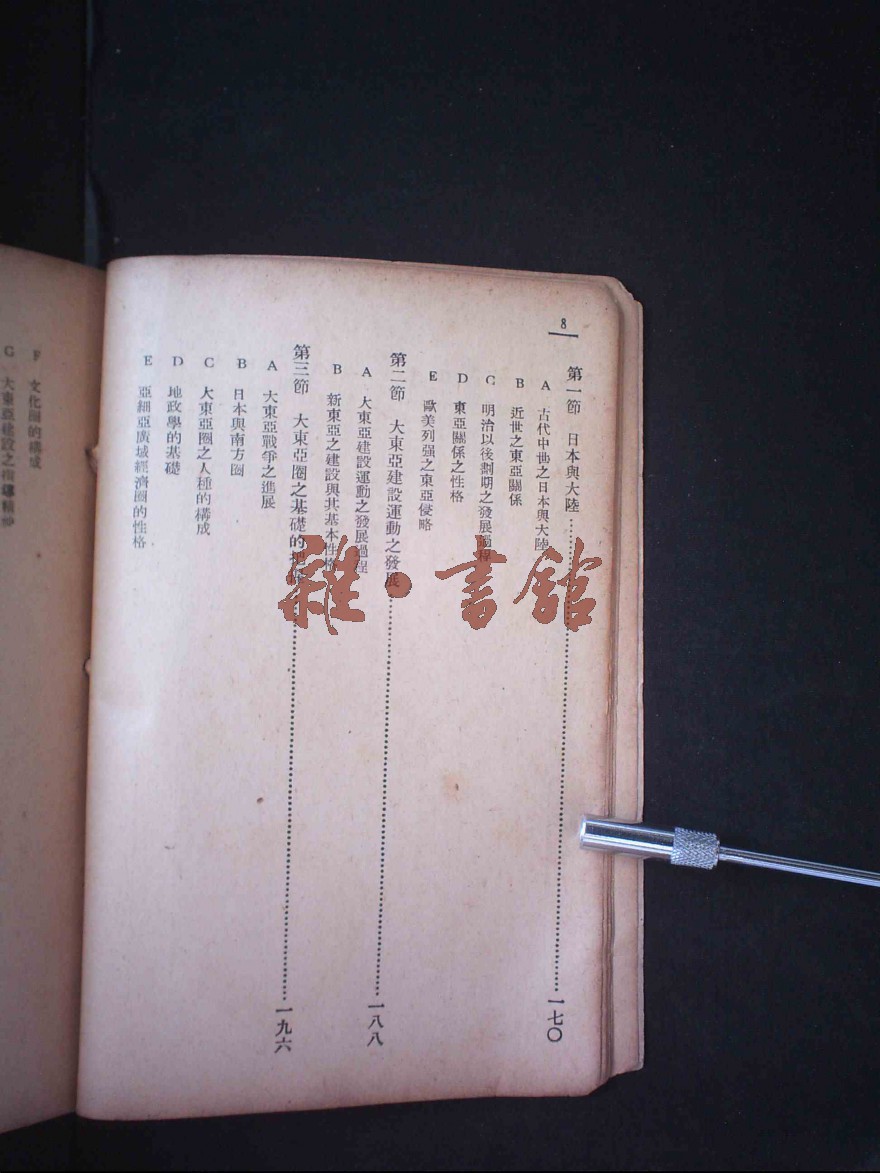 8
第一節 日本與大陸……一七〇
A 古代中世之日本與大陸
B 近世之東亞關係
C 明治以後劃期之發展過程
D 東亞關係之性格
E 歐美列强之東亞侵略
第二節 大東亞建設運動之發展……一八八
A 大東亞建設運動之發展過程
B 新東亞之建設與其基本性格
第三節 大東亞圈之基礎的把握……一九六
A 大東亞戰爭之進展
B 日本與南方圈
C 大東亞圈之人種的構成
D 地政學的基礎
E 亞細亞廣域經濟圈的性格
F 文化圈的構成
G 大東亞建設之指導精神
雜·書館